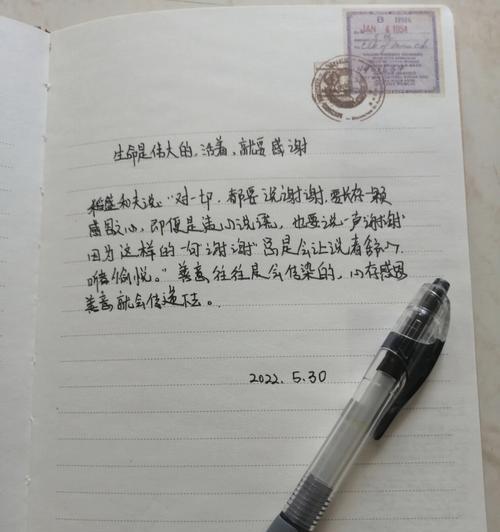 B
JAN 4 1954
生命是伟大的,活着,就要感谢
和夫说:“对一切,都要说谢谢,要长存一颗
感恩心,即便是违心说谎,也要说一声谢谢
因为这样的一句谢谢总是会让说者
愉悦。”善意往往是会传染的,心存感恩
善意就会传递下去。
2022.5.30